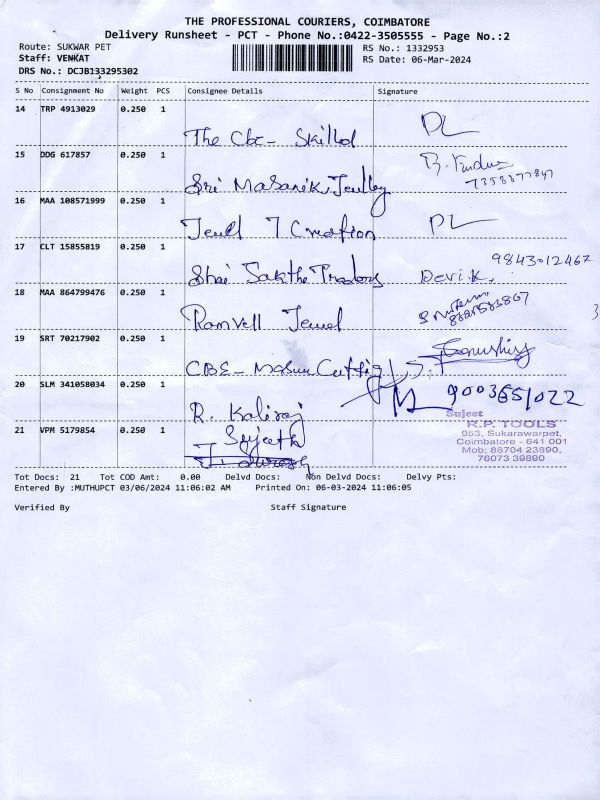 THE PROFESSIONAL COURIERS, COIMBATORE
Delivery Runsheet - PCT - Phone No.:0422-3505555 - Page No.:2
Route: SUKWAR PET
RS No.: 1332953
Staff: VENKAT
RS Date: 06-Mar-2024
DRS No.: DCJB133295302
S No Consignment No Weight PCS Consignee Details Signature
14 TRP 4913029 0.250 1
The Cbe- Skilled
15 DDG 617857 0.250 1
7358377847
Sri
16 MAA 108571999 0.250 1
Jewel 7 Creation
17 CLT 15855819 0.250 1
9843012467
Shri Sakthe Traders Devi.K.
18 MAA 864799476 0.250 1
Ramvell Jewel
19 SRT 70217902 0.250 1
CBE- Cutting
20 SLM 341058034 0.250 1
9003651022
R. Kaliraj
Sujeet
21 VPM 5179854 0.250 1
Sujeeth
R.P. TOOLS
953, Sukarawarpet,
Coimbatore - 641 001
Mob: 88704 23890,
76073 39890
Tot Docs: 21 Tot COD Amt: 0.00 Delvd Docs: Non Delvd Docs: Delvy Pts:
Entered By :MUTHUPCT 03/06/2024 11:06:02 AM Printed On: 06-03-2024 11:06:05
Verified By Staff Signature